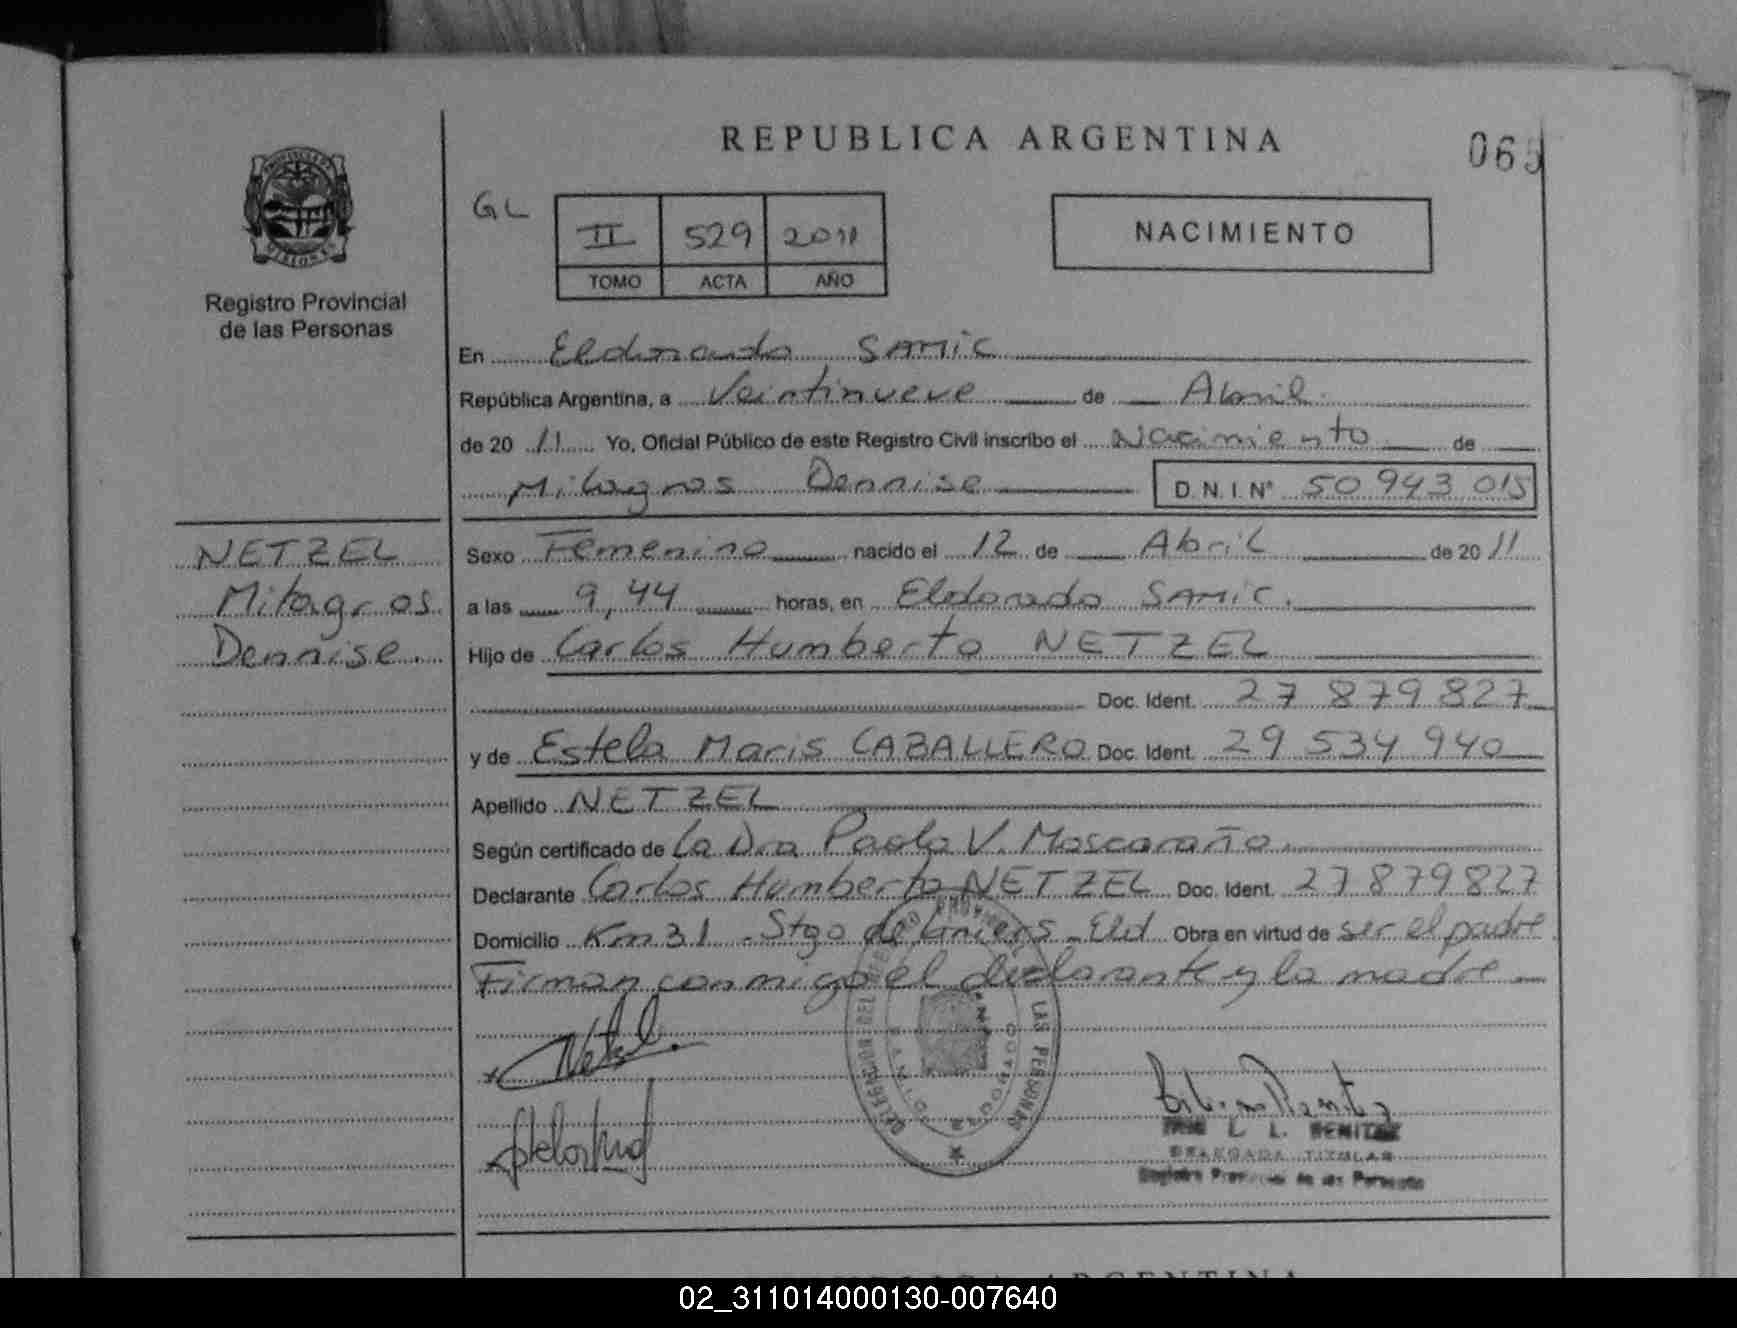 REPUBLICA ARGENTINA
065
GL
II 529 2011
TOMO ACTA AÑO
NACIMIENTO
Registro Provincial
de las Personas
En Eldorado SAMIC
República Argentina, a Veintinueve de Abril
de 20 11 Yo, Oficial Público de este Registro Civil inscribo el Nacimiento de
Milagros Dennise D.N.I.Nº 50 943 015
NETZEL
Milagros
Dennise.
Sexo Femenino nacido el 12 de Abril de 20 11
a las 9,44 horas, en Eldorado SAMIC.
Hijo de Carlos Humberto NETZEL
Doc. Ident. 27 879 827
y de Estela Maris CABALLERO Doc. Ident. 29 534 940
Apellido NETZEL
Según certificado de La Dra Paola V.
Declarante Carlos Humberto NETZEL Doc. Ident. 27 879 827
Domicilio Km 31 - Stgo de Liniers - Eld Obra en virtud de ser el padre
Firman conmigo el declarante y la madre
LAS PERSONAS
L. L. BENITEZ
DELEGADA TITULAR
Registro Provincial de las Personas
REPUBLICA ARGENTINA
02_311014000130-007640